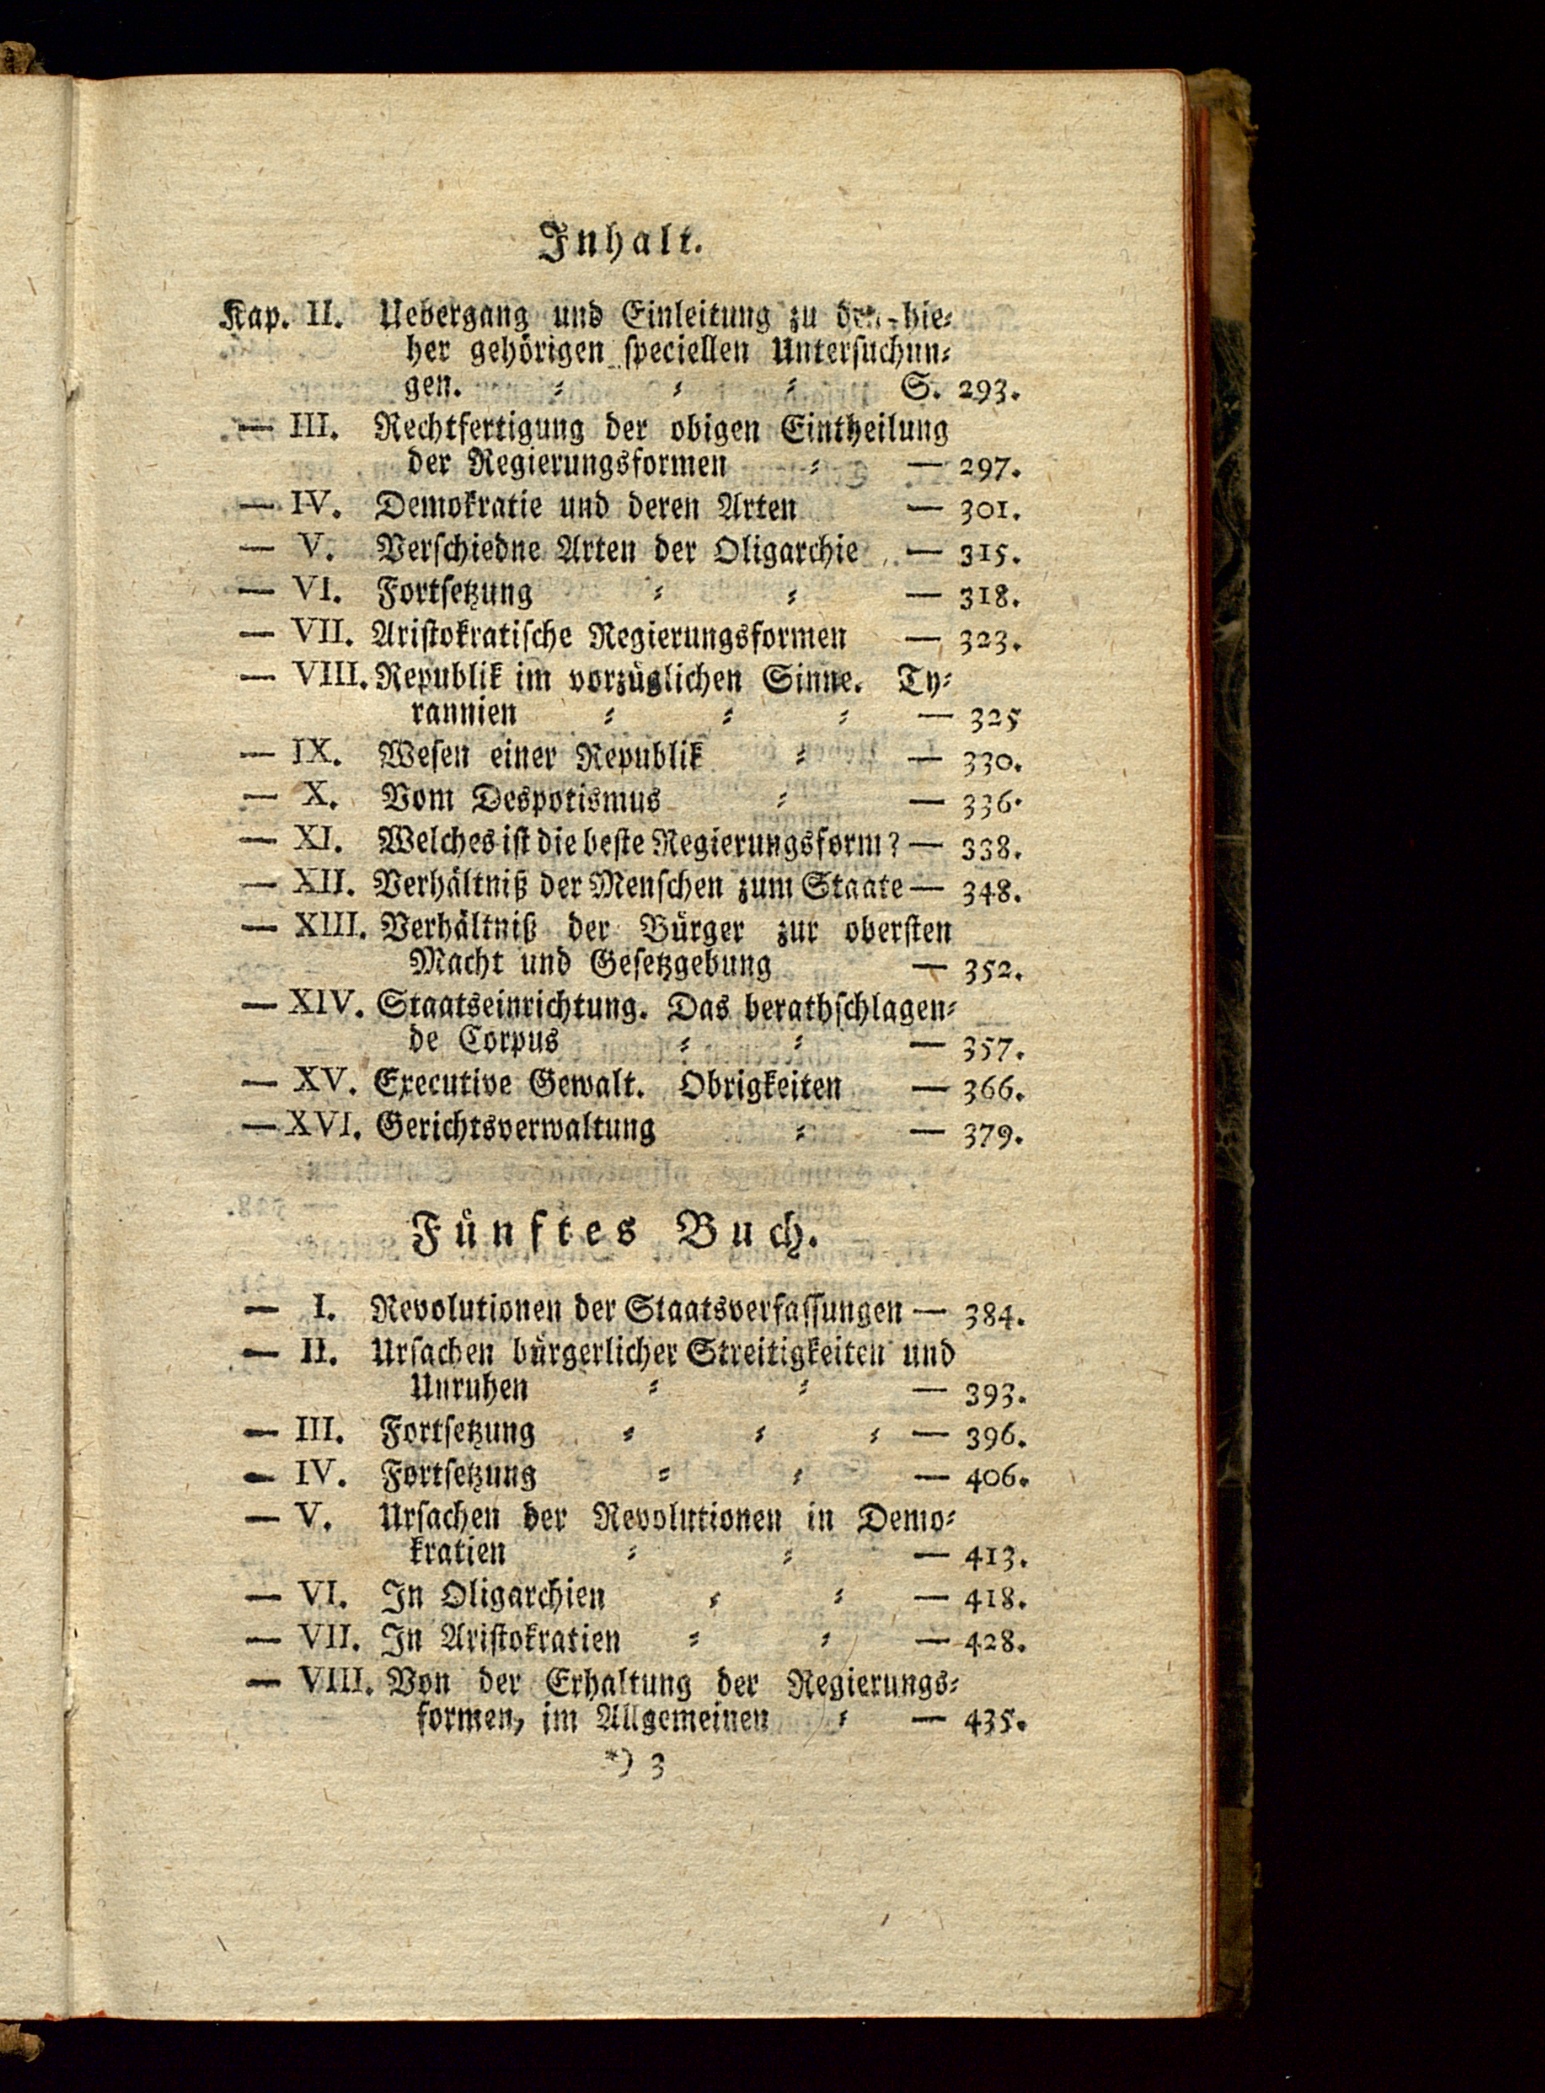 Inhalt.
Kap. II. Uebergang und Einleitung zu den hie⸗
her gehörigen speciellen Untersuchun⸗
gen. ⸗ ⸗ ⸗ S. 293.
— III. Rechtfertigung der obigen Eintheilung
der Regierungsformen ⸗ — 297.
— IV. Demokratie und deren Arten — 301.
— V. Verschiedne Arten der Oligarchie — 315.
— VI. Fortsetzung ⸗ ⸗ — 318.
— VII. Aristokratische Regierungsformen — 323.
— VIII. Republik im vorzüglichen Sinne. Ty⸗
rannien ⸗ ⸗ ⸗ — 325
— IX. Wesen einer Republik ⸗ — 330.
— X. Vom Despotismus ⸗ — 336.
— XI. Welches ist die beste Regierungsform? — 338.
— XII. Verhältniß der Menschen zum Staate — 348.
— XIII. Verhältniß der Bürger zur obersten
Macht und Gesetzgebung — 352.
— XIV. Staatseinrichtung. Das berathschlagen⸗
de Corpus ⸗ ⸗ — 357.
— XV. Executive Gewalt. Obrigkeiten — 366.
— XVI. Gerichtsverwaltung ⸗ — 379.
Fünftes Buch.
— I. Revolutionen der Staatsverfassungen — 384.
— II. Ursachen bürgerlicher Streitigkeiten und
Unruhen ⸗ ⸗ — 393.
— III. Fortsetzung ⸗ ⸗ ⸗ — 396.
— IV. Fortsetzung ⸗ ⸗ — 406.
— V. Ursachen der Revolutionen in Demo⸗
kratien ⸗ ⸗ — 413.
— VI. In Oligarchien ⸗ ⸗ — 418.
— VII. In Aristokratien ⸗ ⸗ — 428.
— VIII. Von der Erhaltung der Regierungs⸗
formen, im Allgemeinen ⸗ — 435.
*) 3